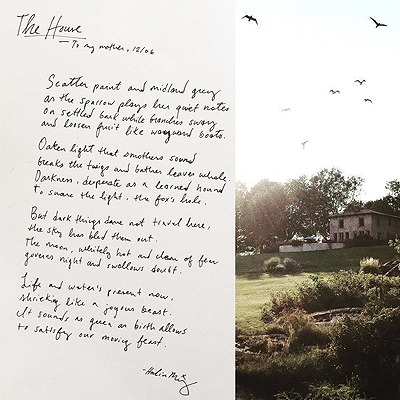 The House
— To my mother, 12/06
Scatter paint and midland grey
as the sparrow plays her quiet notes
on settled bark while branches sway
and loosen fruit like wayward boats.
Oaken light that smothers sound
breaks the twigs and bather leaves whole.
Darkness, desperate as a learned hound
to snare the light, the fox's hole.
But dark things dare not travel here,
the sky has bled them out.
The moon, whitely hot and clean of fear
governs night and swallows doubt.
Life and water's present now,
shrieking like a joyous beast.
It sounds as green as birth allows
to satisfy our moving feast.